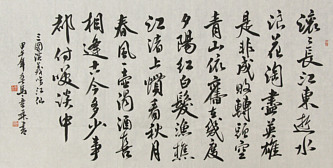 滾滾長江東逝水
浪花淘盡英雄
是非成敗轉頭空
青山依舊在幾度
夕陽紅白髮漁樵
江渚上慣看秋月
春風一壺濁酒喜
相逢古今多少事
都付笑談中
三國演義臨江仙
甲午年